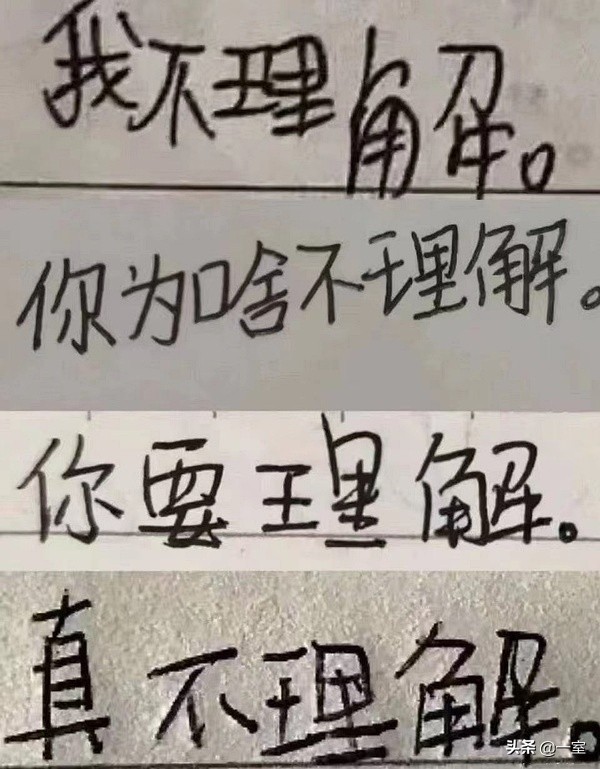 我不理解。
你为啥不理解。
你要理解。
真不理解。
头条 @一室